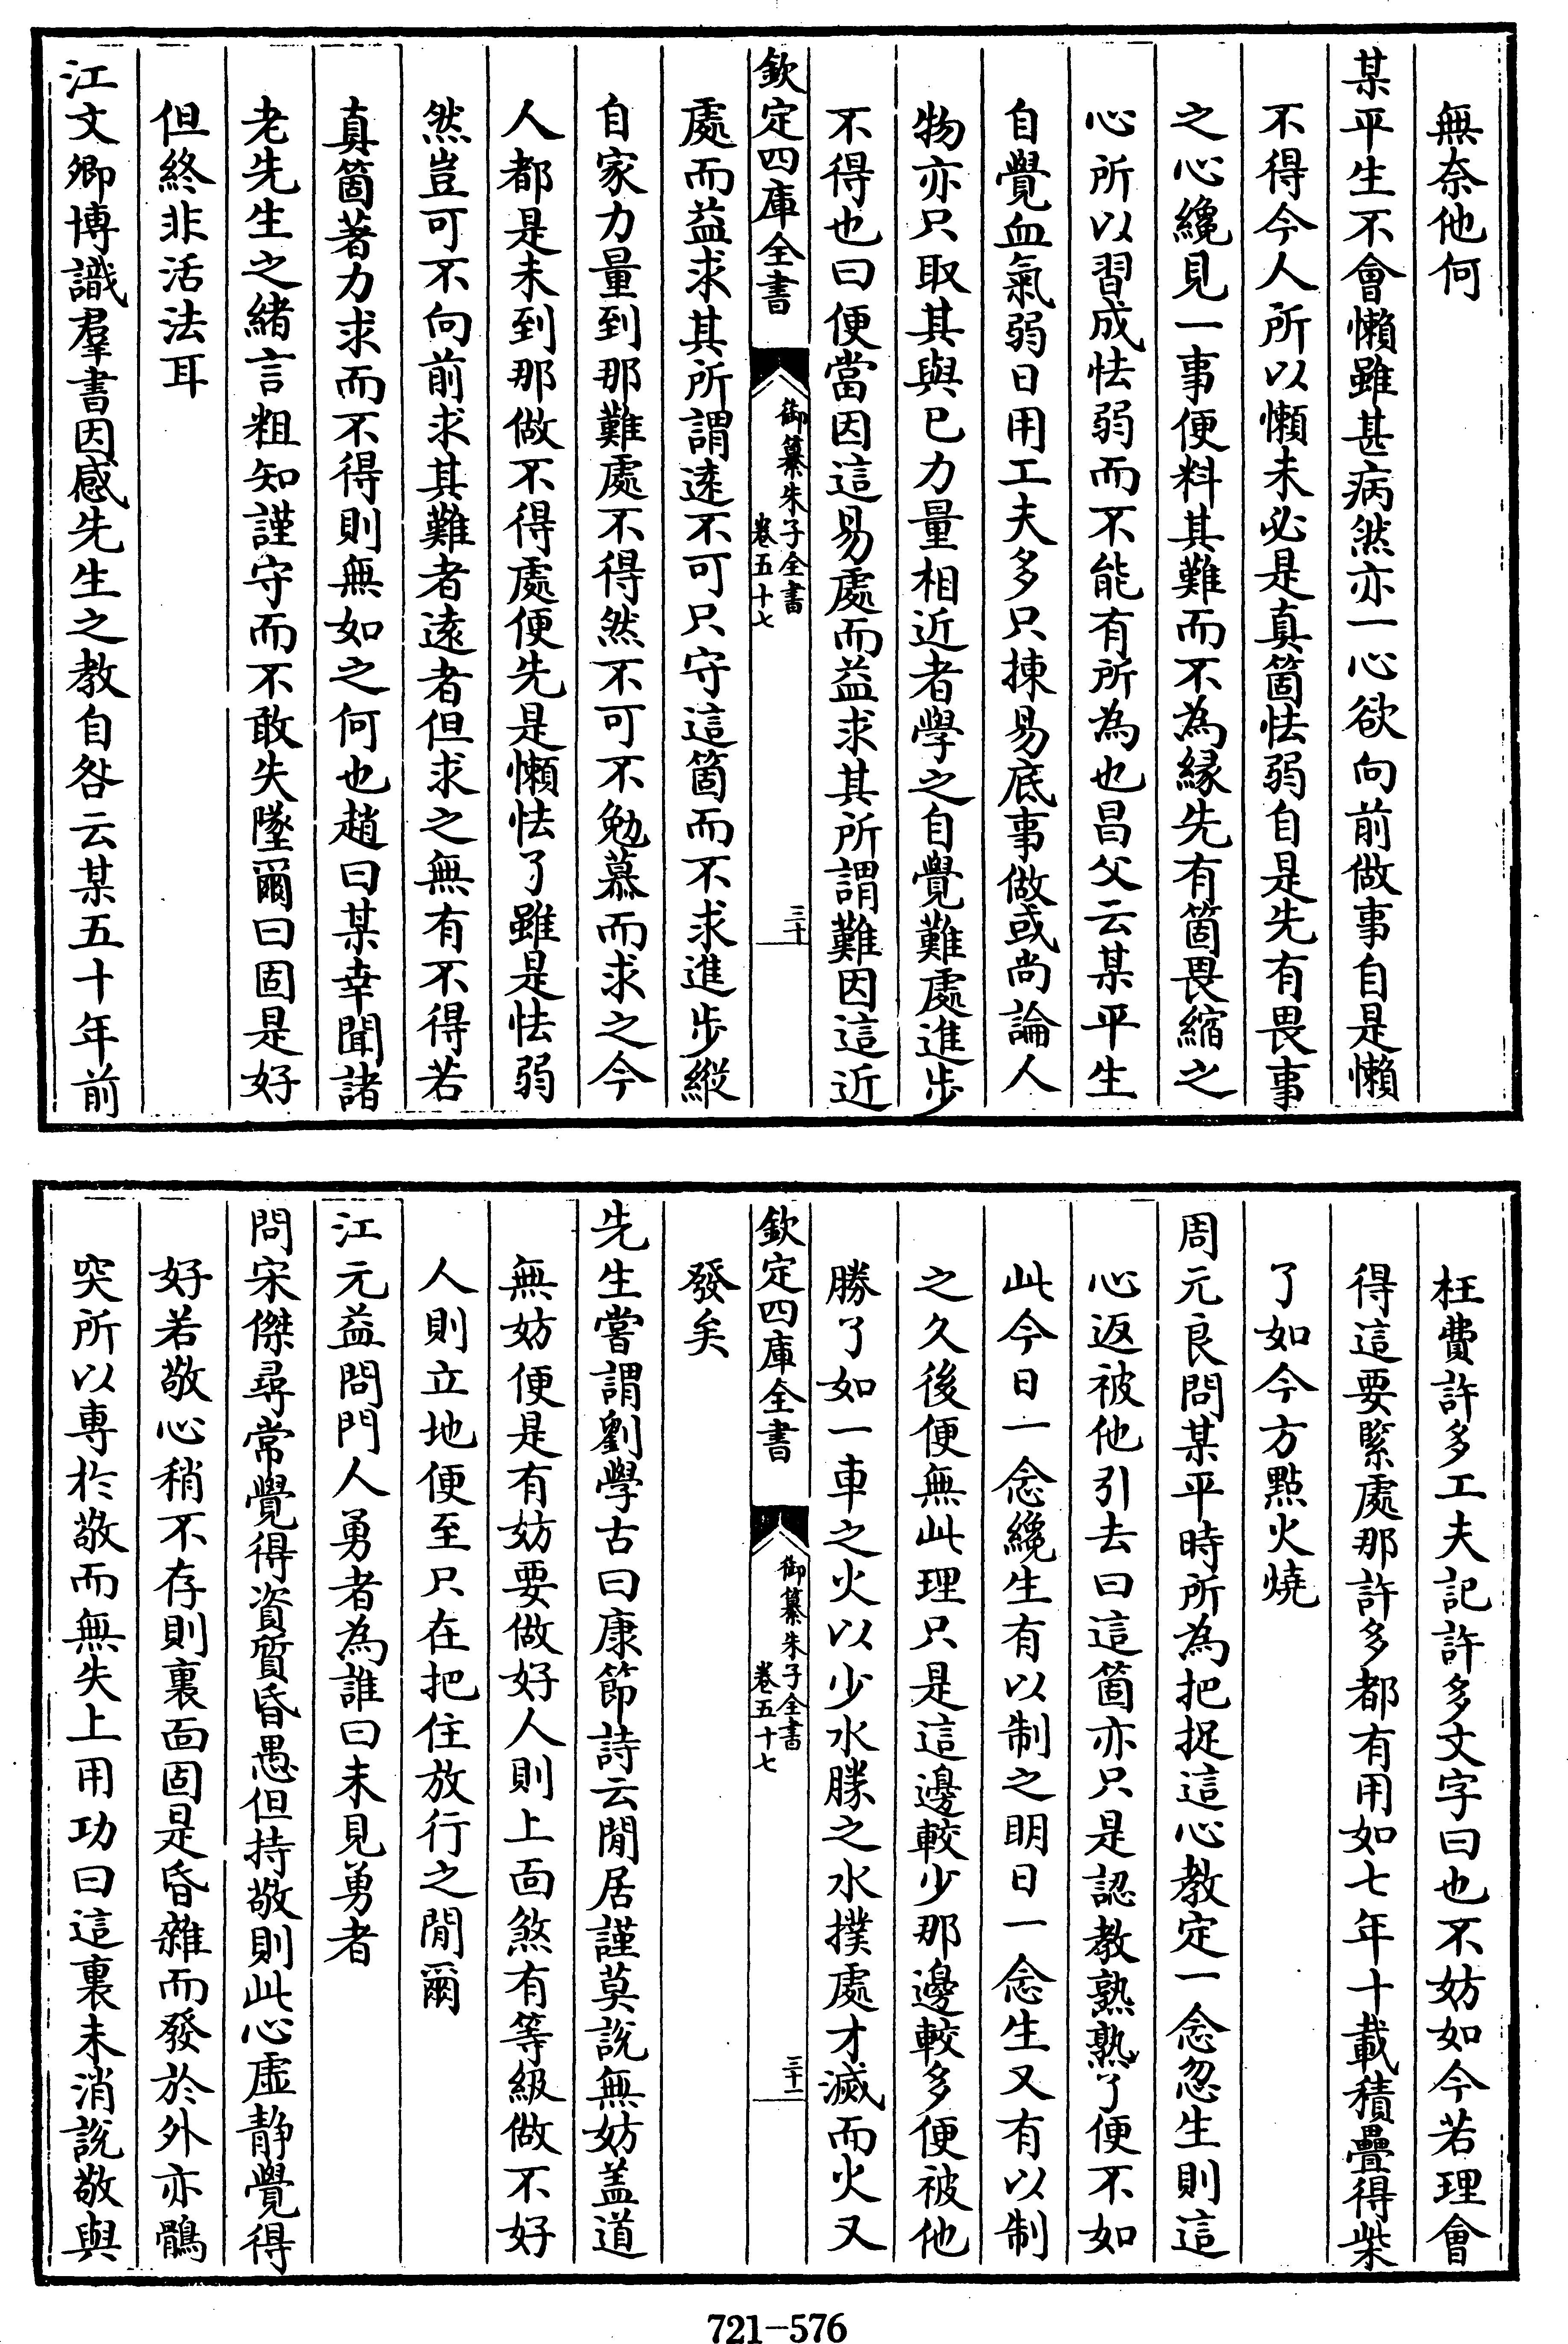 無奈他何
某平生不會懶雖甚病然亦一心欲向前做事自是懶
不得今人所以懶未必是真箇怯弱自是先有畏事
之心纔見一事便料其難而不為緣先有箇畏縮之
心所以習成怯弱而不能有所為也昌父云某平生
自覺血氣弱日用工夫多只揀易底事做或尚論人
物亦只取其與已力量相近者學之自覺難處進步
不得也曰便當因這易處而益求其所謂難因這近
欽定四庫全書
御纂朱子全書
卷五十七
三十
處而益求其所謂逺不可只守這箇而不求進步縱
自家力量到那難處不得然不可不勉慕而求之今
人都是未到那做不得處便先是懶怯了雖是怯弱
然豈可不向前求其難者逺者但求之無有不得若
真箇著力求而不得則無如之何也趙曰某幸聞諸
老先生之緒言粗知謹守而不敢失墜爾曰固是好
但終非活法耳
江文卿博識羣書因感先生之教自咎云某五十年前
枉費許多工夫記許多文字曰也不妨如今若理會
得這要緊處那許多都有用如七年十載積疊得柴
了如今方點火燒
周元良問某平時所為把捉這心教定一念忽生則這
心返被他引去曰這箇亦只是認教熟熟了便不如
此今日一念纔生有以制之明日一念生又有以制
之久後便無此理只是這邊較少那邊較多便被他
勝了如一車之火以少水勝之水撲處才滅而火又
欽定四庫全書
御纂朱子全書
卷五十七
三十一
發矣
先生嘗謂劉學古曰康節詩云閒居謹莫說無妨盖道
無妨便是有妨要做好人則上面煞有等級做不好
人則立地便至只在把住放行之閒爾
江元益問門人勇者為誰曰未見勇者
問宋傑尋常覺得資質昏愚但持敬則此心虛靜覺得
好若敬心稍不存則裏面固是昏雜而發於外亦鶻
突所以専於敬而無失上用功曰這裏未消說敬與
721-576